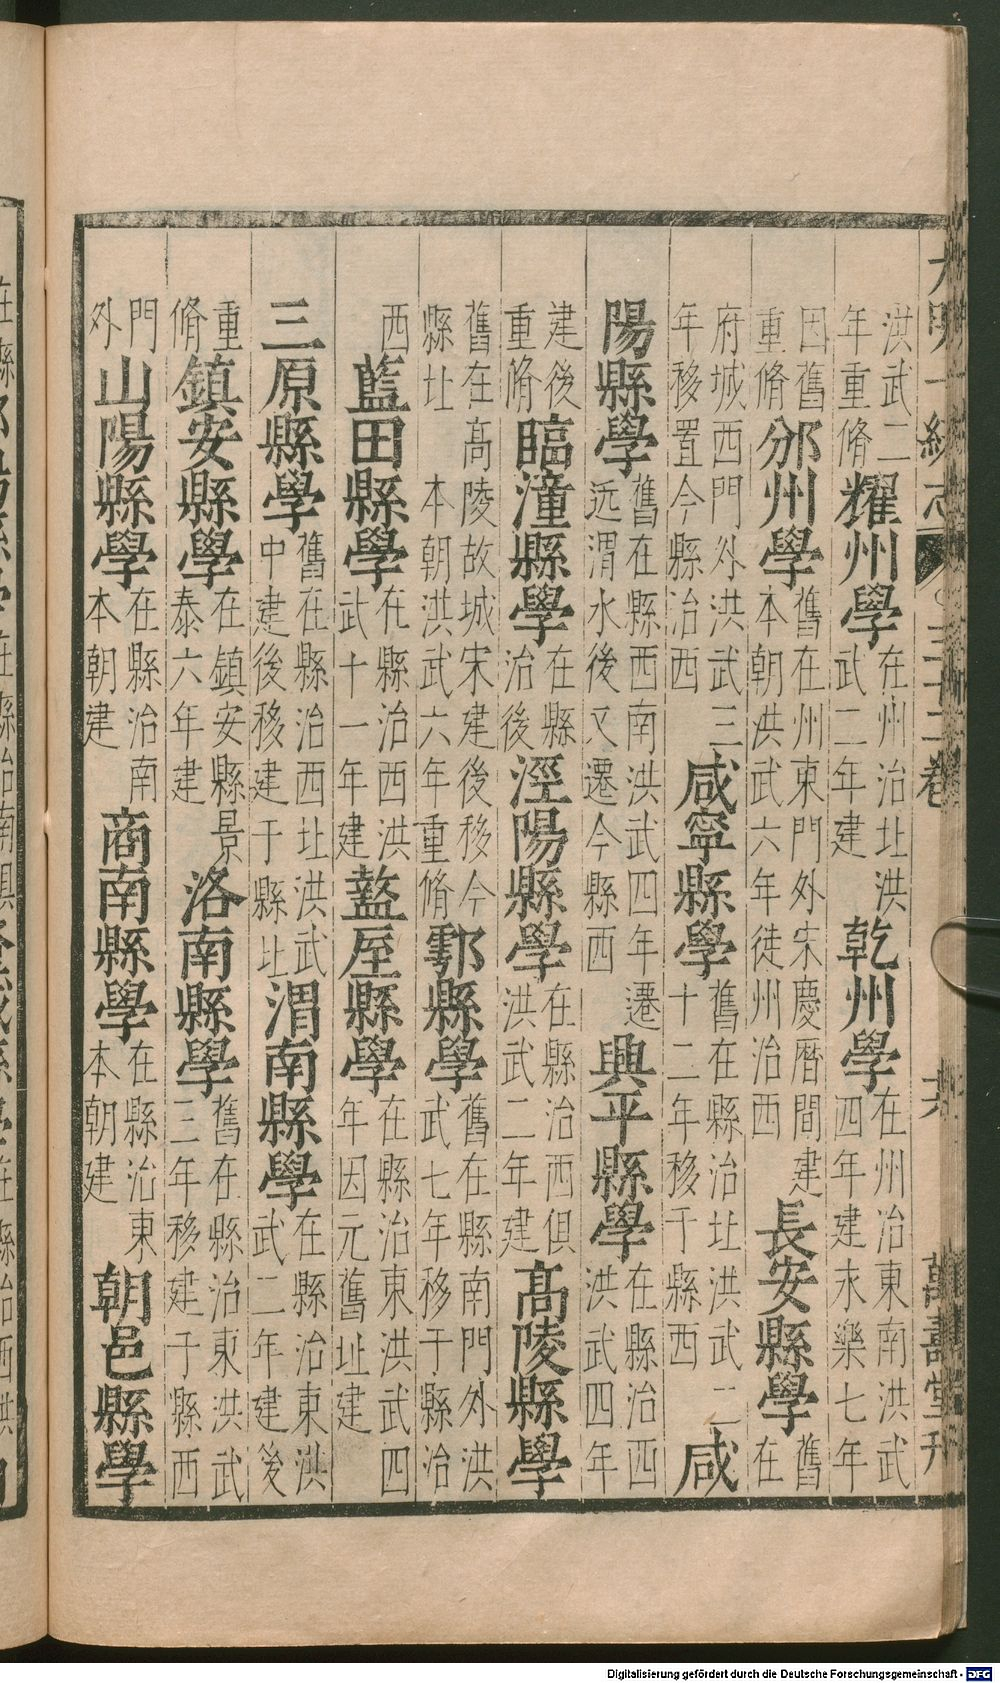 大明一統志 三十二卷 六 萬壽堂刊
洪武二年重脩耀州學在州治北洪武二年建乾州學在州治東南洪武四年建永樂七年
因舊重脩邠州學舊在州東門外宋慶曆間建本朝洪武六年徙州治西長安縣學舊在
府城西門外洪武三年移置今縣治西咸寧縣學舊在縣治北洪武二十二年移于縣西咸
陽縣學舊在縣西南洪武四年遷远渭水後又遷今縣西興平縣學在縣治西洪武四年
建後重脩臨潼縣學在縣治後涇陽縣學在縣治西俱洪武二年建高陵縣學
舊在高陵故城宋建後移今縣北 本朝洪武六年重脩鄠縣學舊在縣南門外洪武七年移于縣治
西藍田縣學在縣治西洪武十一年建盩厔縣學在縣治東洪武四年因元舊址建
三原縣學舊在縣治西北洪武中建後移建于縣北渭南縣學在縣治東洪武二年建後
重脩鎮安縣學在鎮安縣景泰六年建洛南縣學舊在縣治東洪武三年移建于縣西
門外山陽縣學在縣治南本朝建商南縣學在縣治東本朝建朝邑縣學
Digitalisierung gefördert durch die Deutsche Forschungsgemeinschaft - DFG